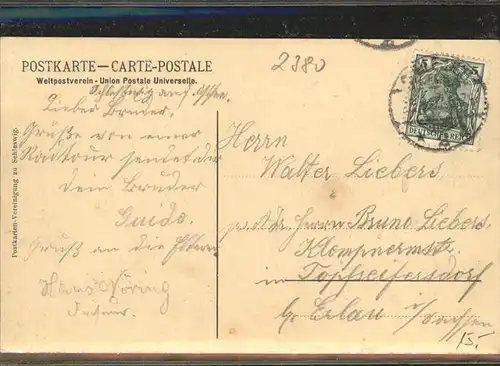 POSTKARTE — CARTE-POSTALE
Weltpostverein - Union Postale Universelle.
2380
Schleswig auf
Lieber Bruder,
Grüße von einer
Radtour sendet dir
dein Bruder
Guido.
Gruß an die Eltern
Hans
Postkarten-Vereinigung zu Schleswig.
DEUTSCHES REICH
Herrn
Walter Liebers
p. Adr. Herrn Bruno Liebers
Klempnermstr.
in Topfseifersdorf
b/ Erlau i/ Sachsen
15.-